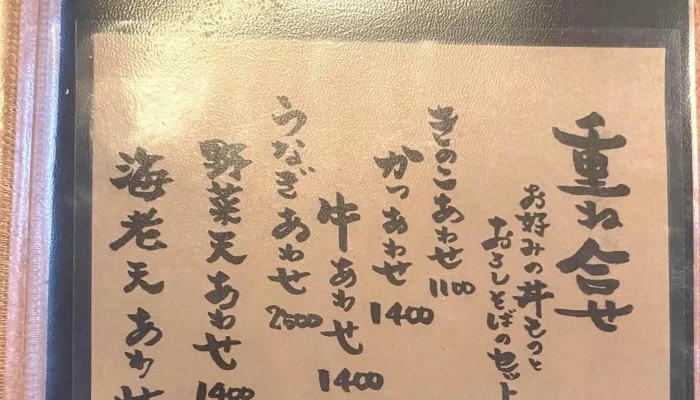 重ね合せ
お好みの丼もつと
おろしそばのセット
きのこあわせ 1100
かつあわせ 1400
牛あわせ 1400
うなぎあわせ 2500
野菜天あわせ 1400
海老天あわせ